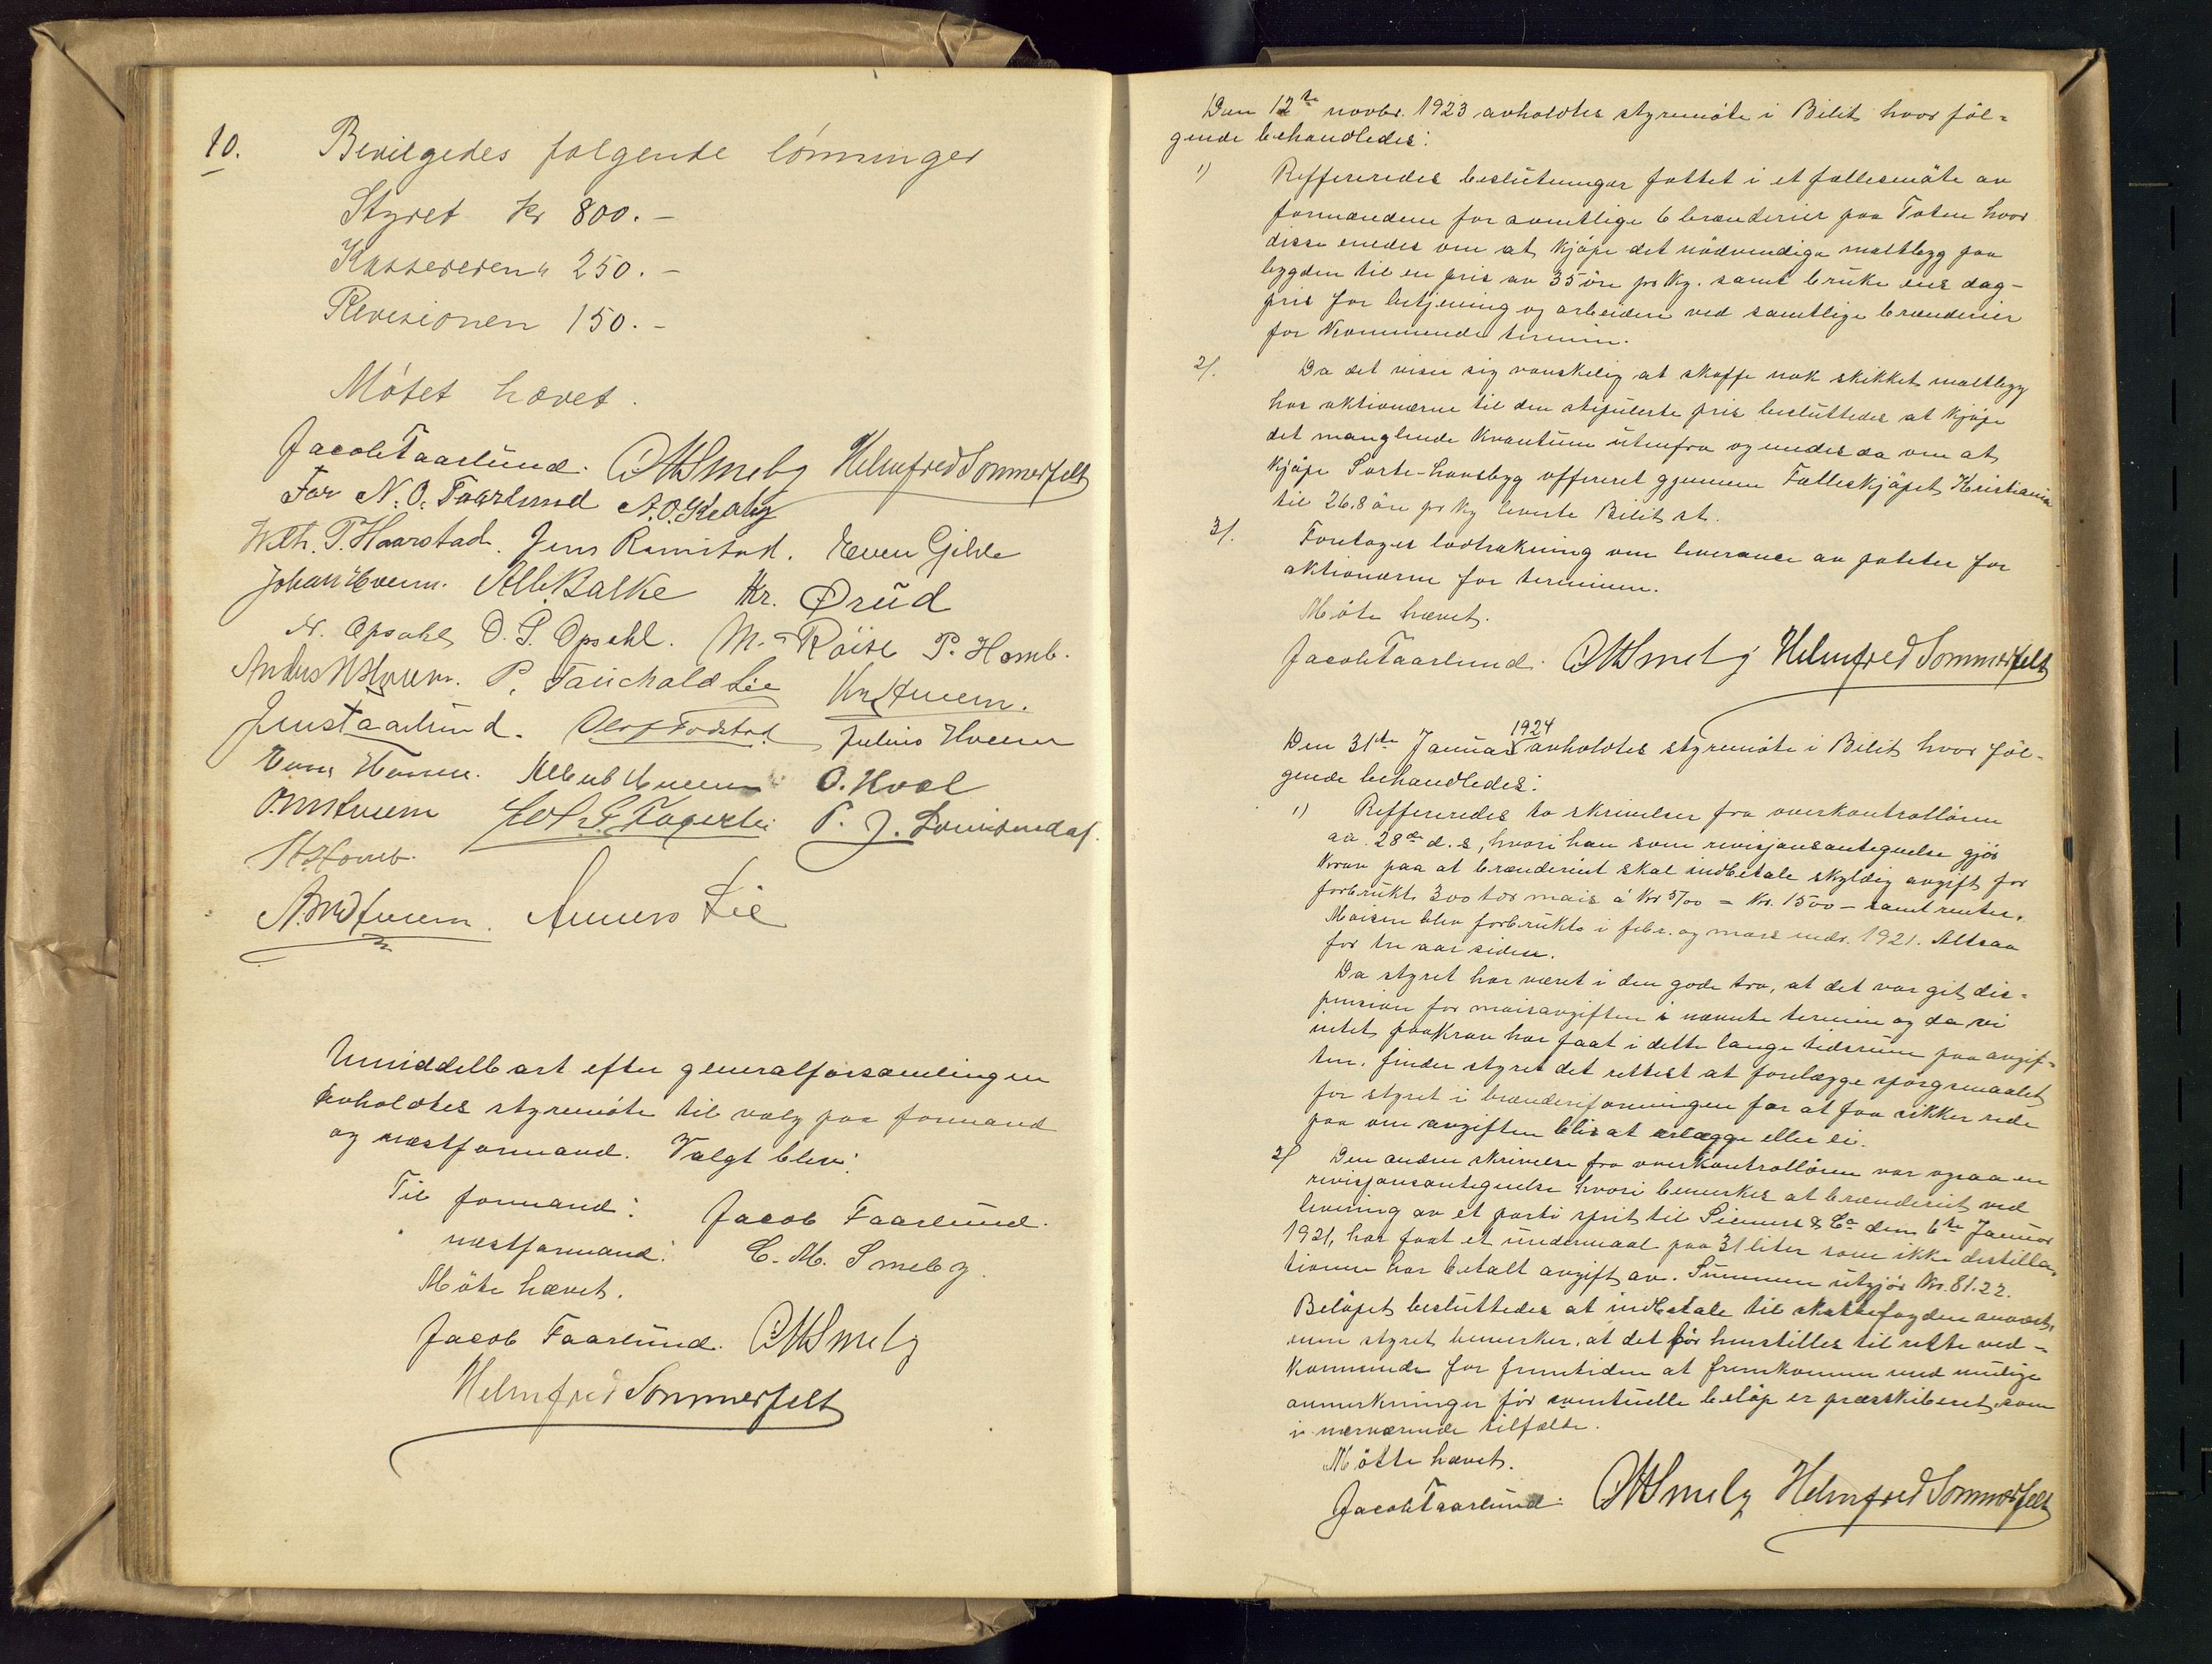 10. Bevilgedes følgende lønninger
Styret Kr 800.-
Kassereren " 250.-
Revisionen 150.-
Møtet hævet.
Jacob Faarlund. CMSmeby Helmfred Sommerfelt
For N. O. Faarlund A. O. Kealy
Wilh. P. Haarstad. Jens Ramstad. Even Gjilde
Johan Hveem. Alb. Balke Kr. Ørud
N. Opsahl O. S. Opsahl. M. Røise P. Homb.
Anders Hveem. P. Fauchald Lie Kr. Hveem.
Jens Faarlund. Olaf Fodstad Julius Hveem
Hans Hveem. Albert Hveem O. Hval
O. M. Hveem Joh. S. Fagerli P. J. Lønnsendal.
H. Homb.
A. M. Hveem. Anners Lie
Umiddelbart efter generalforsamlingen
avholdtes styremöte til valg paa formand
og næstformand. Valgt blev:
Til formand: Jacob Faarlund.
" næstformand: C. M. Smeby.
Möte hævet.
Jacob Faarlund. CMSmeby
Helmfred Sommerfelt
Den 12te novbr. 1923 avholdtes styremöte i Bilit hvor föl=
gende behandledes:
1) Reffereredes beslutninger fattet i et fællesmöte av
formændene for samtlige 6 brænderier paa Toten hvor
disse enedes om at kjöpe det nödvendige maltbyg paa
bygden til en pris av 35 öre pr kg. samt bruke ens dag-
pris for betjening og arbeidere ved samtlige brænderier
for kommende termin.
2/. Da det viser sig vanskelig at skaffe nok skikket maltbyg
hos aktionærene til den stipulerte pris besluttedes at kjöpe
det manglende kvantum utenfra og enedes da om at
kjöpe Sorte-havsbyg offereret gjennem Fælleskjöpet, Kristiania
til 26.8 öre pr kg levert Bilit st.
3/. Foretoges lodtrækning om leverance av poteter for
aktionærene for terminen.
Möte hævet.
Jacob Faarlund. CMSmeby Helmfred Sommerfelt
1924
Den 31te Januar avholdtes styremöte i Bilit hvor föl-
gende behandledes:
1) Reffereredes to skrivelser fra overkontrollören
av 28de d. s, hvori han som revisjonsantegnelse gjör
krav paa at brænderiet skal indbetale skyldig avgift for
forbrukt 300 tdr mais á kr 5/00 = Kr. 1500 - samt renter.
Maisen blev forbrukt i febr. og mars mdr. 1921. Altsaa
for tre aar siden.
Da styret har været i den gode tro, at det var git dis=
pension for maisavgiften i nævnte termin og da vi
intet paakrav har faat i dette lange tidsrum paa avgif=
ten, finder styret det rettest at forelægge spörgsmaalet
for styret i brænderiforeningen for at faa sikker rede
paa om avgiften blir at erlægge eller ei.
2/ Den anden skrivelse fra overkontrollören var ogsaa en
revisjonsantegnelse hvori bemerkes at brænderiet ved
levering av et parti sprit til Siemers & Co den 6te Januar
1921, har faat et undermaal paa 31 liter som ikke destilla=
tionen har betalt avgift av. Summen utgjör Kr. 81.22.
Belöpet besluttedes at indbetale til skattefogden
men styret bemerker, at det bör henstilles til rette ved=
kommende for fremtiden at fremkomme med mulige
anmerkninger för eventuelle belöp er præskiberet, som
i nærværende tilfælde.
Mötte hævet.
Jacob Faarlund. CMSmeby Helmfred Sommerfelt